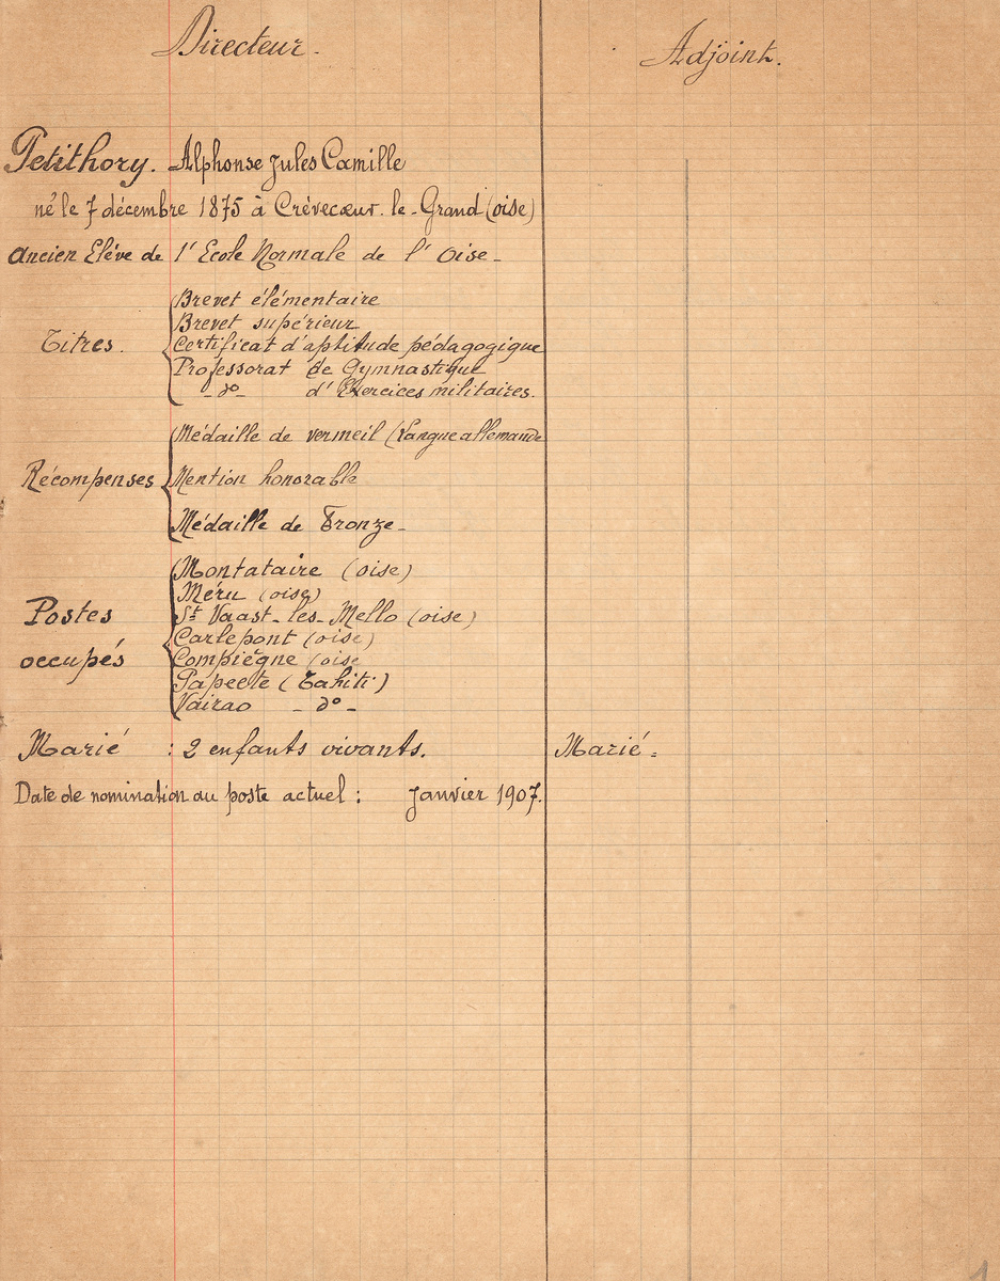 Directeur.
Adjoint.
Petithory. Alphonse Jules Camille
né le 7 décembre 1875 à Crévecœur-le-Grand (oise)
Ancien Elève de l'Ecole Normale de l'Oise-
Titres.
Brevet élémentaire
Brevet supérieur
Certificat d'aptitude pédagogique
Professorat de Gymnastique
-do- d'Exercices militaires.
Récompenses
Médaille de vermeil (Langue allemande
Mention honorable
Médaille de Bronze-
Postes occupés
Montataire (oise)
Méru (oise)
St Vaast-les-Mello (oise)
Carlepont (oise)
Compiègne (oise
Papeete (Tahiti)
Vairao -do-
Marié : 2 enfants vivants.
Marié =
Date de nomination au poste actuel : Janvier 1907.